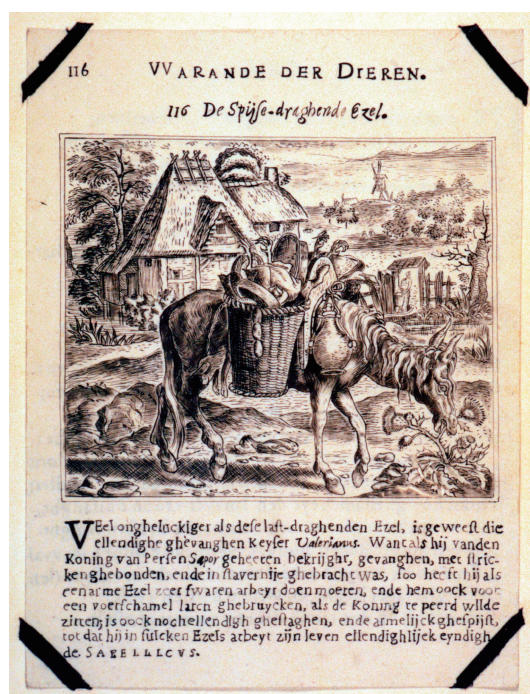 116 WARANDE DER DIEREN.
116 De Spijse-draghende Ezel.
VEel ongheluckiger als dese last-draghenden Ezel, is geweest die
ellendighe ghevanghen Keyser Valerianus. Want als hij vanden
Koning van Persen Sapor geheeten bekrijght, gevanghen, met stric-
ken ghebonden, ende in slavernije ghebracht was, soo heeft hij als
een arme Ezel zeer swaren arbeyt doen moeten, ende hem oock voor
een voetschamel laten ghebruycken, als de Koning te peerd wilde
zitten; is oock noch ellendigh gheslaghen, ende armelijck ghespijst,
tot dat hij in sulcken Ezels arbeyt zijn leven ellendighlijek eyndigh
de. SABELLICVS.